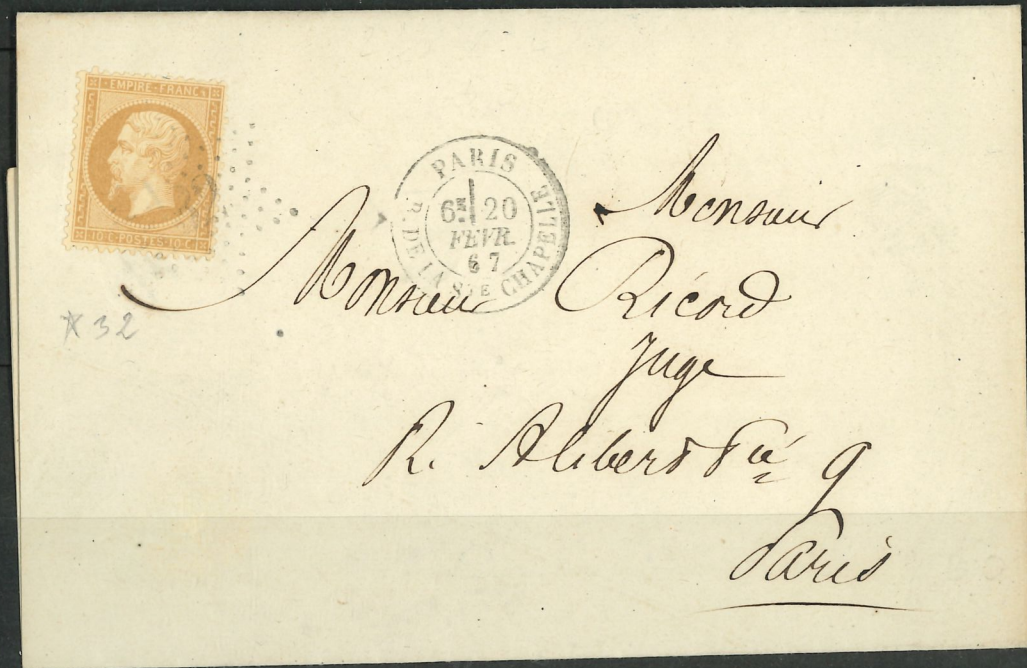 EMPIRE FRANC
10 C. POSTES 10 C.
PARIS
6E 20
FEVR.
67
R. DE LA STE CHAPELLE
32
Monsieur
Monsieur Ricord
Juge
R. Alibert 9
Paris